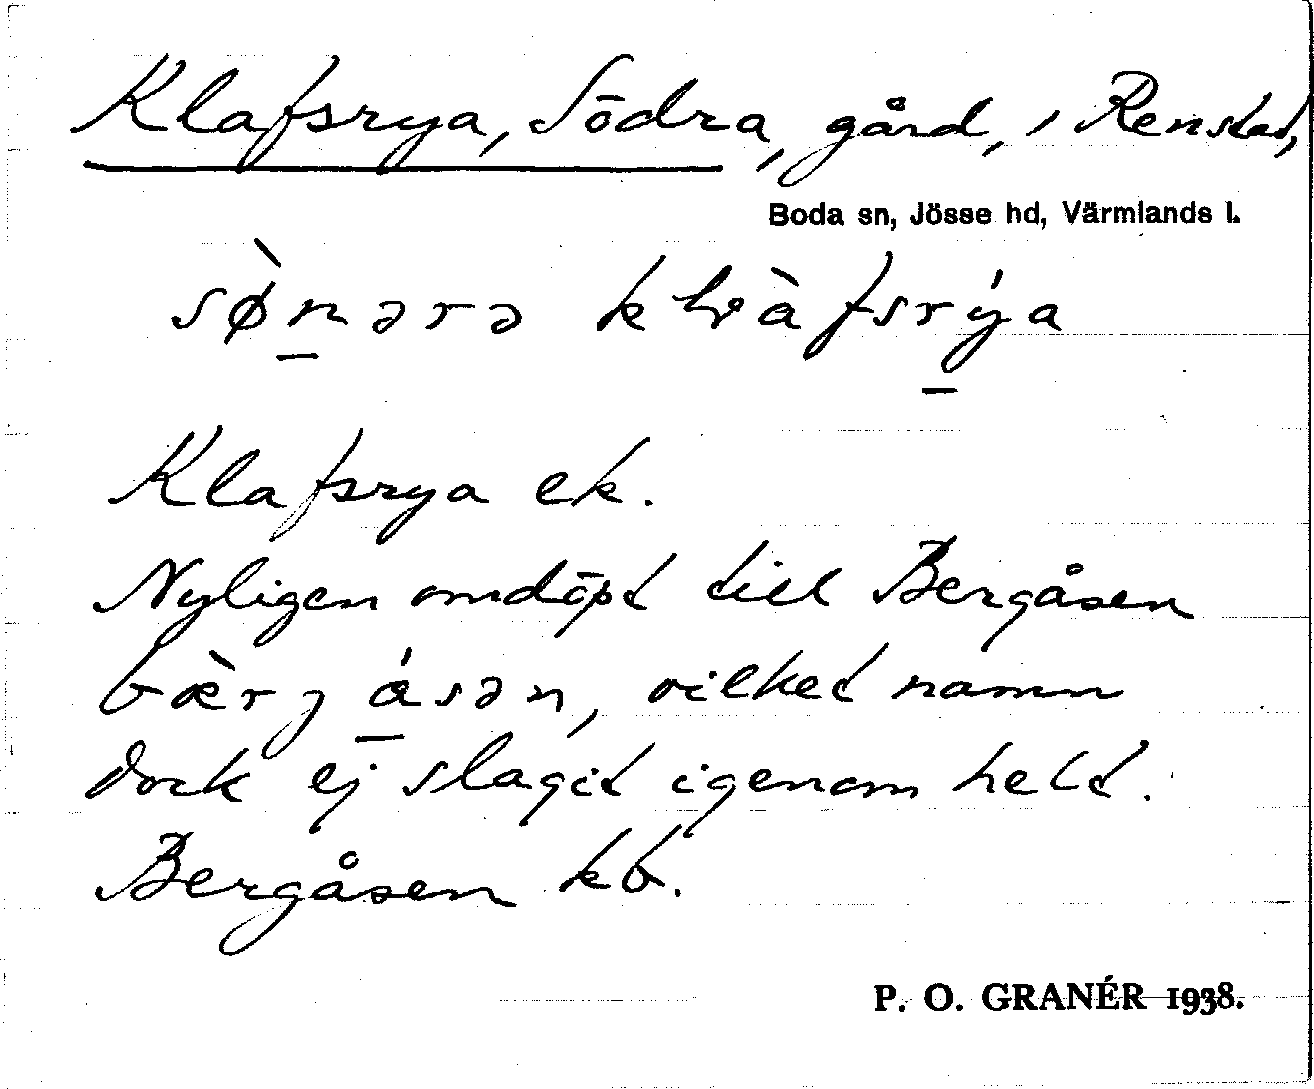 Klafsrya, Södra, gård, i Renstad,
Boda sn, Jösse hd, Värmlands l.
sø̀nərə kɫàfsrýa
Klafsrya ek.
Nyligen omdöpt till Bergåsen
bæ̀rjásən, vilket namn
dock ej slagit igenom helt.
Bergåsen kb.
P. O. GRANÉR 1938.